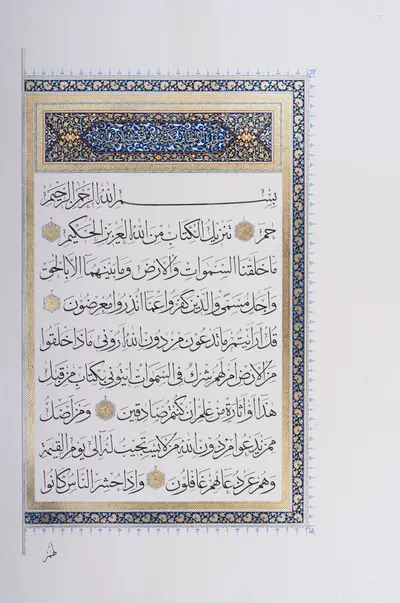 بِسْمِ اللهِ الرَّحْمٰنِ الرَّحِيمِ
حم تَنْزِيلُ الْكِتَابِ مِنَ اللهِ الْعَزِيزِ الْحَكِيمِ
مَا خَلَقْنَا السَّمٰوَاتِ وَالْاَرْضَ وَمَا بَيْنَهُمَا اِلَّا بِالْحَقِّ
وَاَجَلٍ مُسَمًّى وَالَّذِينَ كَفَرُوا عَمَّا اُنْذِرُوا مُعْرِضُونَ
قُلْ اَرَاَيْتُمْ مَا تَدْعُونَ مِنْ دُونِ اللهِ اَرُونِي مَاذَا خَلَقُوا
مِنَ الْاَرْضِ اَمْ لَهُمْ شِرْكٌ فِي السَّمٰوَاتِ اِيتُونِي بِكِتَابٍ مِنْ قَبْلِ
هٰذَا اَوْ اَثَارَةٍ مِنْ عِلْمٍ اِنْ كُنْتُمْ صَادِقِينَ وَمَنْ اَضَلُّ
مِمَّنْ يَدْعُوا مِنْ دُونِ اللهِ مَنْ لَا يَسْتَجِيبُ لَهُ اِلٰى يَوْمِ الْقِيٰمَةِ
وَهُمْ عَنْ دُعَائِهِمْ غَافِلُونَ وَاِذَا حُشِرَ النَّاسُ كَانُوا
لَهُمْ